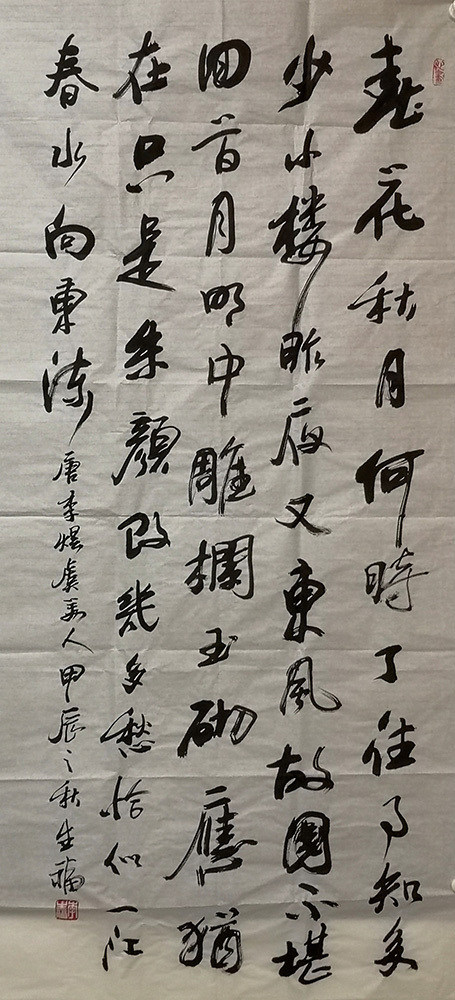 春花秋月何時了往事知多
少小楼昨夜又東風故國不堪
回首月明中雕欄玉砌應猶
在只是朱顔改幾多愁恰似一江
春水向東流 唐李煜虞美人甲辰之秋生